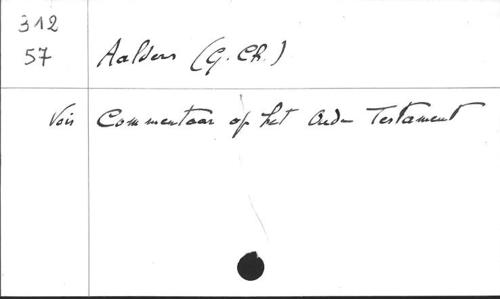 312
57 Aalders (G. Ch.)
Vois Commentaar op het Oude Testament